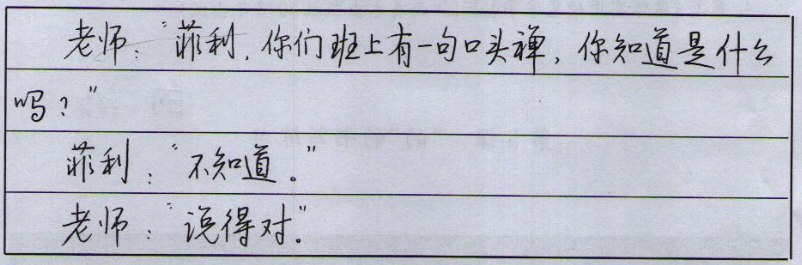 老师：“菲利，你们班上有一句口头禅，你知道是什么
吗？”
菲利：“不知道。”
老师：“说得对。”